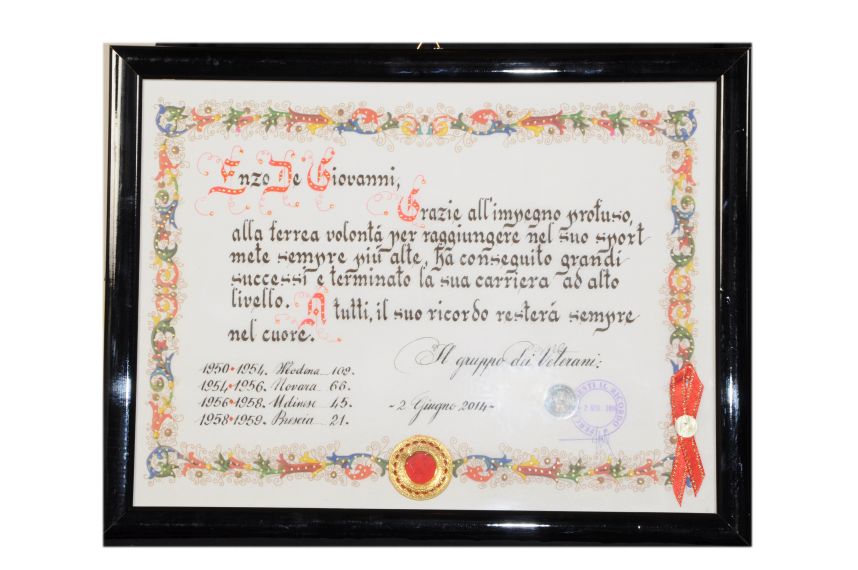 Enzo De Giovanni,
Grazie all'impegno profuso,
alla ferrea volontá per raggiungere nel suo sport
mete sempre piú alte, ha conseguito grandi
successi e terminato la sua carriera ad alto
livello. A tutti, il suo ricordo resterá sempre
nel cuore.
Il gruppo dei Veterani:
1950-1954. Modena 109.
1954-1956. Novara 66.
1956-1958. Udinese 45.
1958-1959. Brescia 21.
- 2 Giugno 2014 -
IL RICORDO